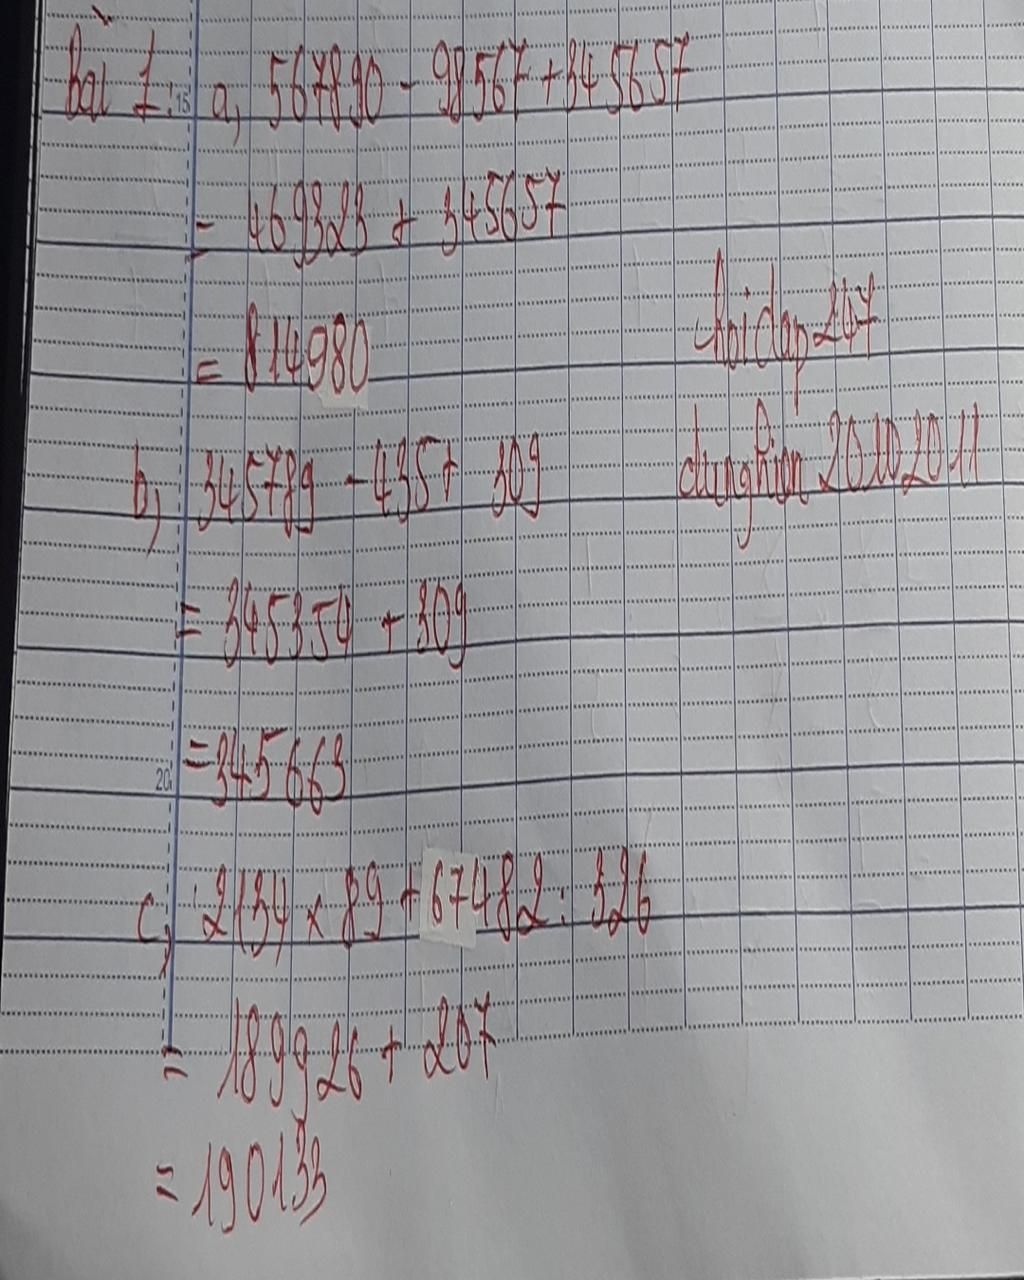 Bài 1: a, 567890 - 98567 + 345657
= 469323 + 345657
= 814980
hoidap247
dunghion20102011
b, 345789 - 435 + 309
= 345354 + 309
= 345663
c, 2134 x 89 + 67482 : 326
= 189926 + 207
= 190133
15
20